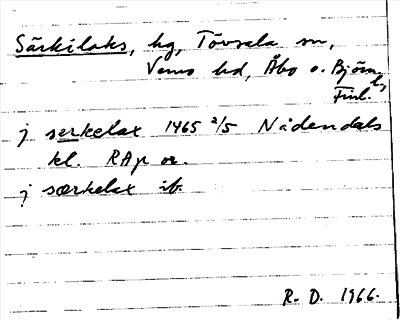 Särkilaks, hg, Tövsala sn,
Vemo hd, Åbo o. Björneb.
Finl.
j serkelax 1465 2/5 Nådendals
kl. RAp or.
j særkelax ib.
R. D. 1966.